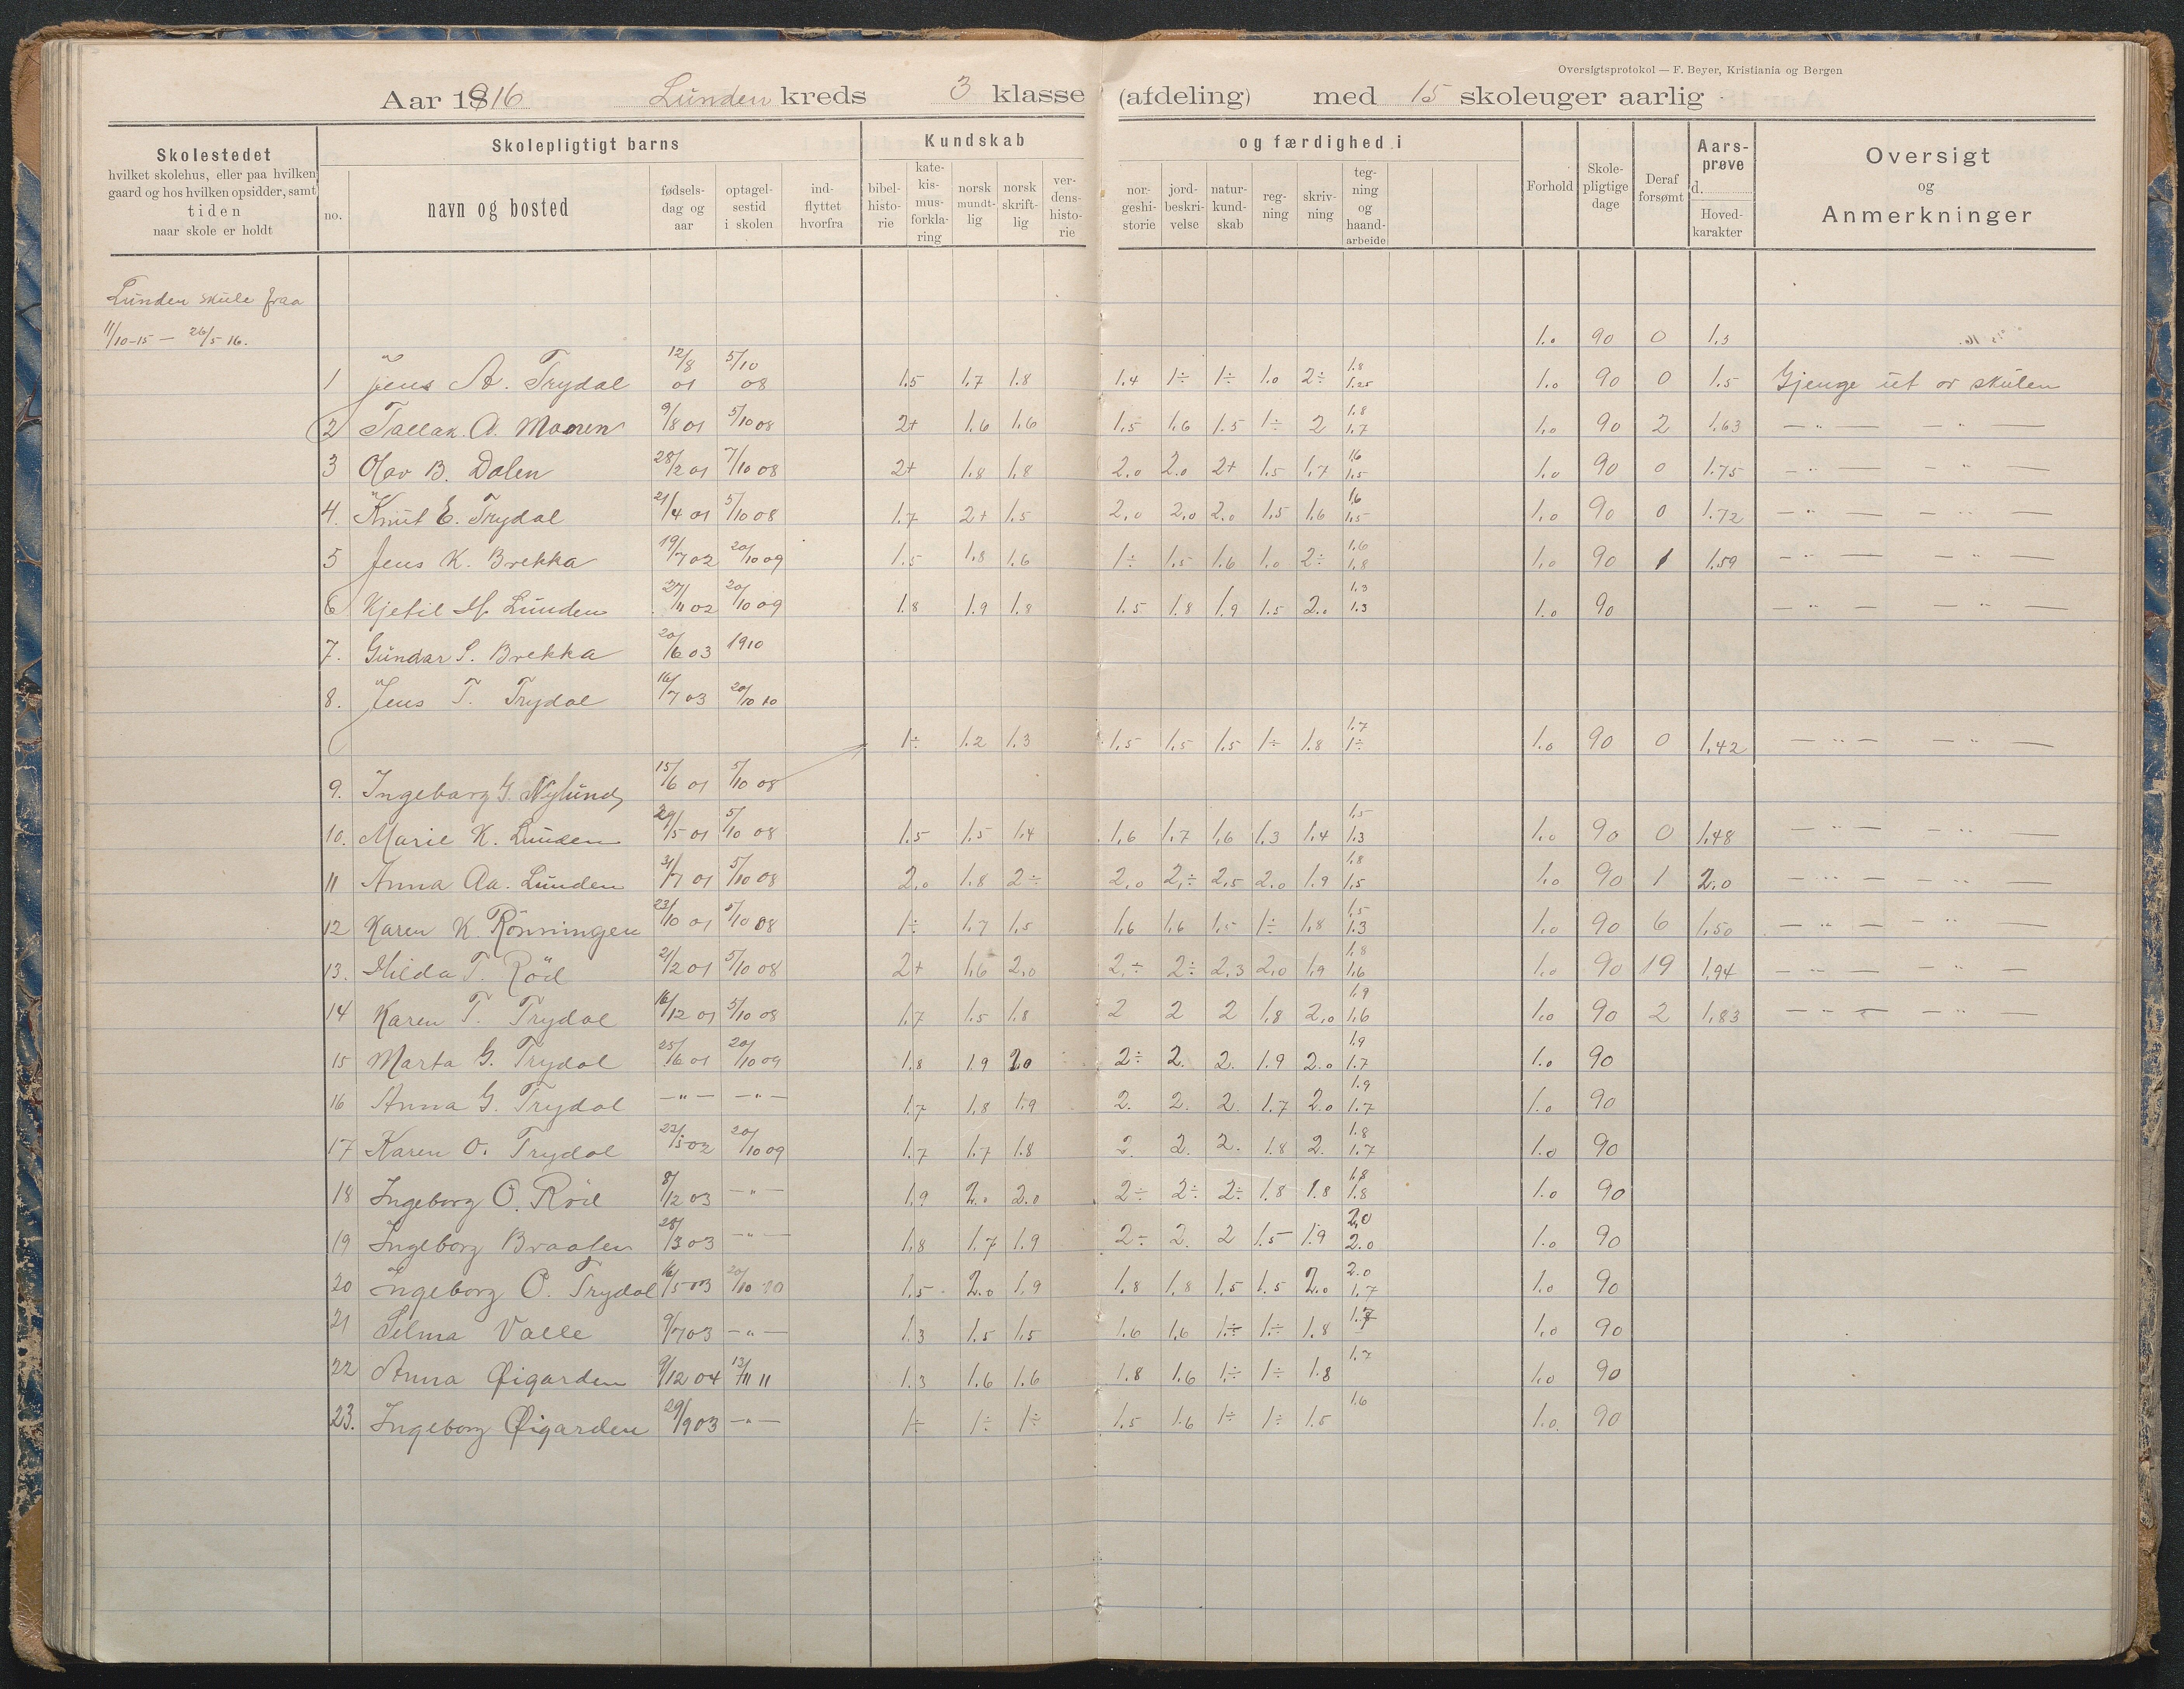 Oversigtsprotokol — F. Beyer, Kristiania og Bergen
Aar 1916 Lunden kreds 3 klasse (afdeling) med 15 skoleuger aarlig
Skolestedet hvilket skolehus, eller paa hvilken gaard og hos hvilken opsidder, samt tiden naar skole er holdt
Skolepligtigt barns
no. navn og bosted fødsels-dag og aar optagel-sestid i skolen ind-flyttet hvorfra
Kundskab og færdighed i
bibel-histo-rie kate-kis-mus-forkla-ring norsk mundt-lig norsk skrift-lig ver-dens-histo-rie nor-geshi-storie jord-beskri-velse natur-kund-skab reg-ning skriv-ning teg-ning og haand-arbeide
Forhold Skole-pligtige dage Deraf forsømt Aars-prøve d. Hoved-karakter
Oversigt og Anmerkninger
Lunden skule fraa
11/10-15 — 26/5-16.
1.0 90 0 1.3
1 Jens A. Trydal 12/8 01 5/10 08 1.5 1.7 1.8 1.4 1÷ 1÷ 1.0 2÷ 1.8 1.25 1.0 90 0 1.5 Gjenge ut or skulen
2 Tallak A. Moen 9/8 01 5/10 08 2+ 1.6 1.6 1.5 1.6 1.5 1÷ 2 1.8 1.7 1.0 90 2 1.63 — " — — " —
3 Olav B. Dalen 28/2 01 7/10 08 2+ 1.8 1.8 2.0 2.0 2+ 1.5 1.7 1.6 1.5 1.0 90 0 1.75 — " — — " —
4. Knut E. Trydal 21/4 01 5/10 08 1.7 2+ 1.5 2.0 2.0 2.0 1.5 1.6 1.6 1.5 1.0 90 0 1.72 — " — — " —
5 Jens K. Brekka 19/7 02 20/10 09 1.5 1.8 1.6 1÷ 1.5 1.6 1.0 2÷ 1.6 1.8 1.0 90 1 1.59 — " — — " —
6 Kjetil H. Lunden 27/11 02 20/10 09 1.8 1.9 1.8 1.5 1.8 1.9 1.5 2.0 1.3 1.3 1.0 90 — " — — " —
7. Gundar S. Brekka 20/6 03 1910
8. Jens T. Trydal 16/7 03 20/10 10
1÷ 1.2 1.3 1.5 1.5 1.5 1÷ 1.8 1.7 1÷ 1.0 90 0 1.42 — " — — " —
9. Ingebarg G. Nylund 15/6 01 5/10 08
10. Marie K. Lunden 29/5 01 5/10 08 1.5 1.5 1.4 1.6 1.7 1.6 1.3 1.4 1.5 1.3 1.0 90 0 1.48 — " — — " —
11 Anna Aa. Lunden 31/7 01 5/10 08 2.0 1.8 2÷ 2.0 2.÷ 2.5 2.0 1.9 1.8 1.5 1.0 90 1 2.0 — " — — " —
12 Karen K. Rönningen 23/10 01 5/10 08 1÷ 1.7 1.5 1.6 1.6 1.5 1÷ 1.8 1.5 1.3 1.0 90 6 1.50 — " — — " —
13. Hilda T. Röd 21/2 01 5/10 08 2+ 1.6 2.0 2.÷ 2÷ 2.3 2.0 1.9 1.8 1.6 1.0 90 19 1.94 — " — — " —
14 Karen T. Trydal 16/12 01 5/10 08 1.7 1.5 1.8 2 2 2 1.8 2.0 1.9 1.6 1.0 90 2 1.83 — " — — " —
15 Marta G. Trydal 25/6 01 20/10 09 1.8 1.9 2.0 2÷ 2. 2. 1.9 2.0 1.9 1.7 1.0 90
16 Anna G. Trydal — " — — " — 1.7 1.8 1.9 2. 2. 2. 1.7 2.0 1.9 1.7 1.0 90
17 Karen O. Trydal 22/5 02 20/10 09 1.7 1.7 1.8 2. 2. 2. 1.8 2. 1.8 1.7 1.0 90
18 Ingeborg O. Röd 8/12 03 — " — 1.9 2.0 2.0 2÷ 2÷ 2÷ 1.8 1.8 1.8 1.8 1.0 90
19 Ingeborg Braaten 28/3 03 — " — 1.8 1.7 1.9 2÷ 2. 2 1.5 1.9 2.0 2.0 1.0 90
20 Ingeborg O. Trydal 16/5 03 20/10 10 1.5 2.0 1.9 1.8 1.8 1.5 1.5 2.0 2.0 1.7 1.0 90
21 Selma Valle 9/7 03 — " — 1.3 1.5 1.5 1.6 1.6 1.÷ 1.÷ 1.8 1.7 1.0 90
22 Anna Øigarden 9/12 04 13/11 11 1.3 1.6 1.6 1.8 1.6 1.÷ 1÷ 1.8 1.7 1.0 90
23. Ingeborg Øigarden 29/9 03 — " — 1÷ 1÷ 1÷ 1.5 1.6 1÷ 1÷ 1.5 1.6 1.0. 90